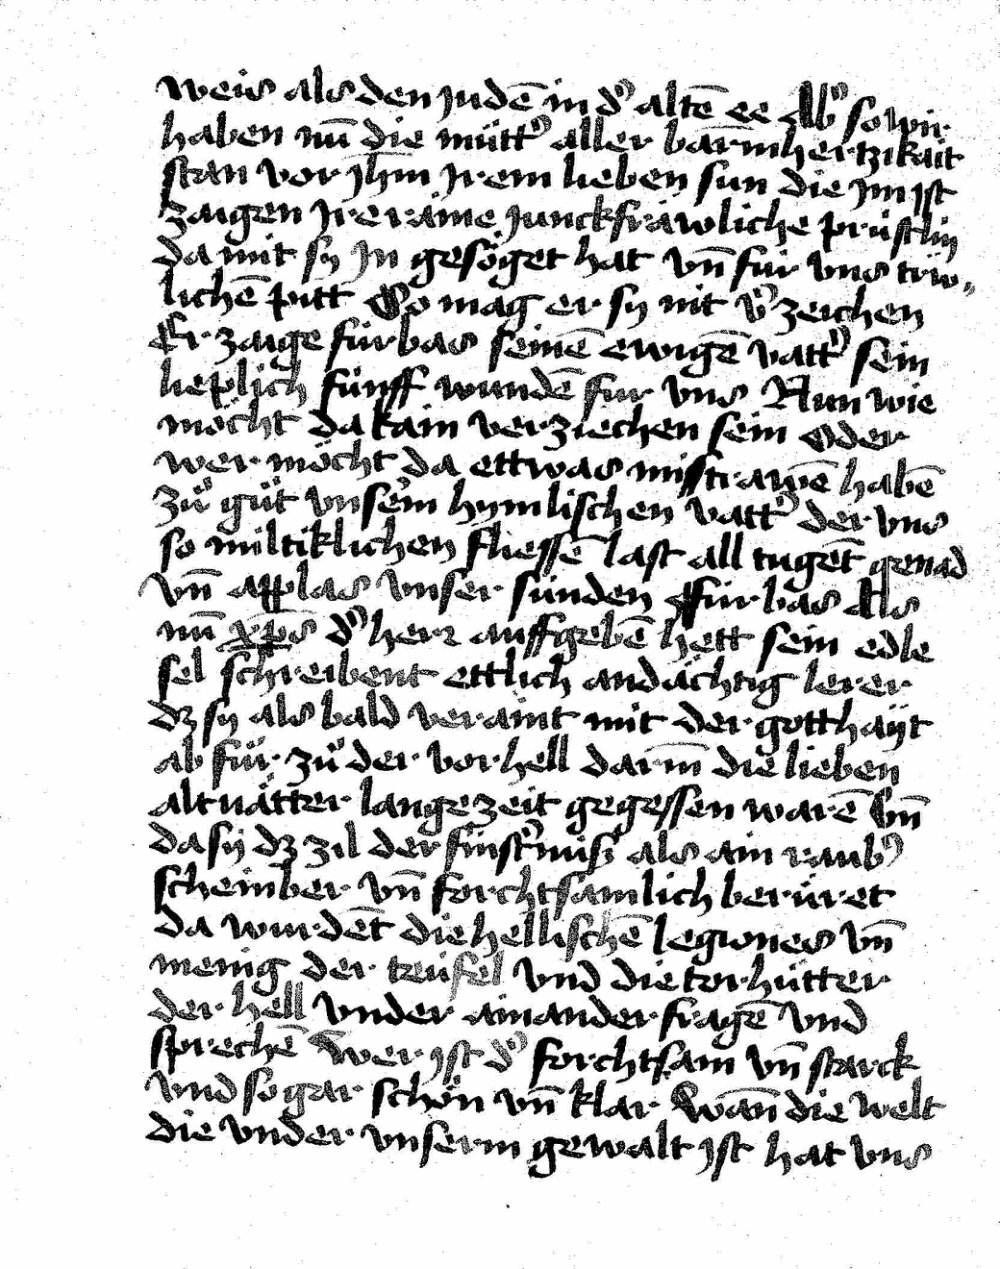 weis als den judē in dˀ altē ee Abˀ so wir
haben nū die müttˀ aller barmhertzikait
stan vor jhm jrem lieben sun die jm ist
zaigen jre raine junckfräwliche prüstlin
da mit sy jn gesöget hat vn̄ für vns triw„
lichē pitt So mag er sy nit vˀzeichen
Er zaige fürbas seinē ewigē vattˀ sein
lieplich fünff wundē fur vns Nun wie
möcht da kain verziechen sein Oder
wer möcht da ettwas misstrawē habē
zů gůt vnserm hymlischen vattˀ der vns
so miltiklichen fliessē last all tugēt genad
vn̄ applas vnser sünden Fürbas Als
nū xp̄s dˀ herr auffgebē hett sein edle
sel schreibent ettlich andächtig lerer
dz sy als bald veraint mit der gotthayt
ab für zů der vorhell darin̄ die lieben
altuätter lange zeit gegessen warē Vn̄
da sy dz zil der finstˀniss als ain raubˀ
scheinber vn̄ forchtsamlich berüret
da wurdēt die hellischē legiones vn̄
menig der teüfel vnd die torhütter
der hell vnder ainander fragē vnd
sprechē Wer ist dˀ forchtsam vn̄ starck
vnd so gar schön vn̄ klar Wan̄ die welt
die vnder vnserm gewalt ist hat vns